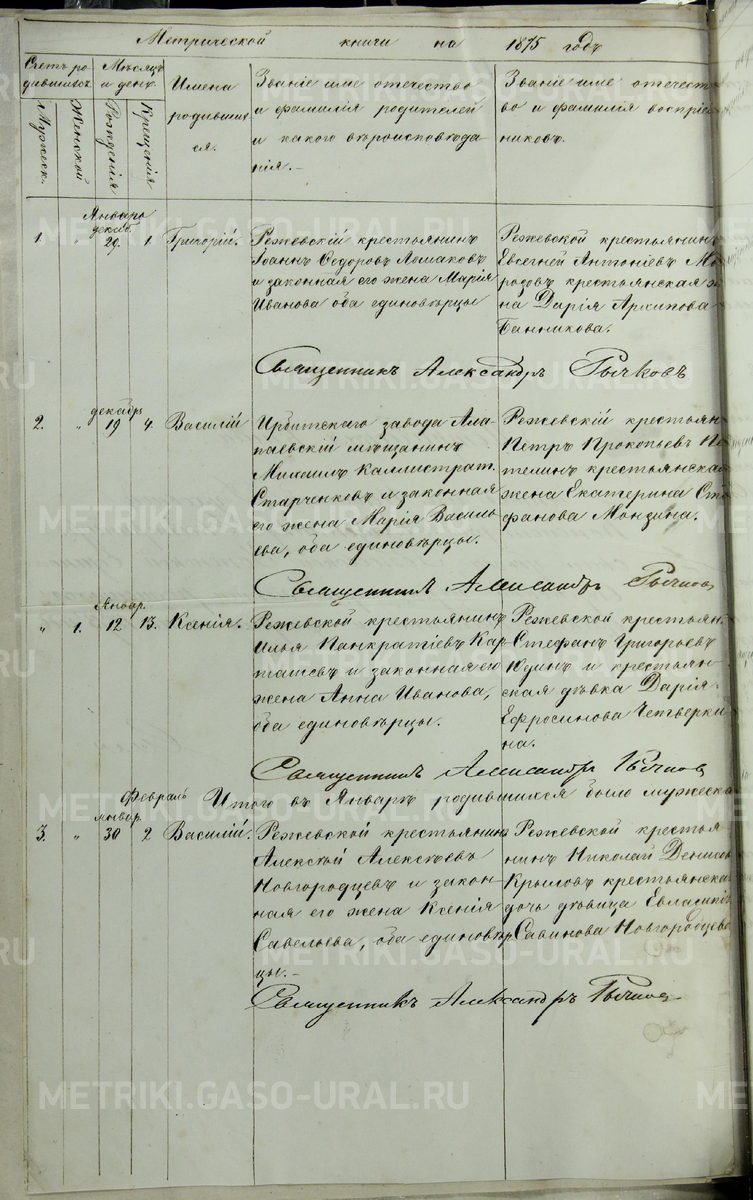 Метрической книги на 1875 годъ
Счетъ ро-
дившихъ.
Мѣсяцъ
и день.
Имена
родивших
ся.
Званіе име отечество
и фамилія родителей
и какого вѣроисповѣда
нія.-
Званіе име отечест
во и фамилія воспріе
никовъ.
Мужеск.
Женской
Рожденія
Крещенія
Январь
декаб.
1. " 29. 1. Григорій.
Режевскій крестьянинъ
Іоаннъ Ѳедоровъ
и законная его жена Марія
Иванова оба единовѣрцы
Режевской крестьянинъ
Евгеній Антоніевъ Мо
розовъ крестьянская же
на Дарія Архипова
Банникова.
Священникъ Александръ Рычковъ
декабрь
2. " 19 4. Василій
Ирбитскаго завода Ала-
паевскій мѣщанинъ
Михаилъ Каллистрат.
Старченковъ и законная
его жена Марія Василь
ева, оба единовѣрцы.
Режевскій крестьян
Петръ Прокопьевъ
крестьянская
жена Екатерина Сте
фанова Монзина.
Священникъ Александръ Рычков
Январ.
" 1. 12 13. Ксенія.
Режевской крестьянинъ
Илья Панкратіевъ Кар
ташевъ и законная его
жена Анна Иванова,
оба единовѣрцы.
Режевской крестьян.
Стефанъ Григорьевъ
Юдинъ и крестьян-
ская дѣвка Дарія
Ефросинова Четверки
на.
Священникъ Александръ Рычков
Февраль
Итого въ Январѣ родившихся было мужеска
январ.
3. " 30 2. Василій.
Режевской крестьянинъ
Алексѣй Алексѣевъ
Новгородцевъ и закон-
ная его жена Ксенія
Савельева, оба единовѣр
цы.-
Режевской крестья
нинъ Николай Денисов
Крыловъ крестьянская
дочь дѣвица Евлампія
Савинова Новгородцева
Священникъ Александръ Рычков
METRIKI.GASO-URAL.RU